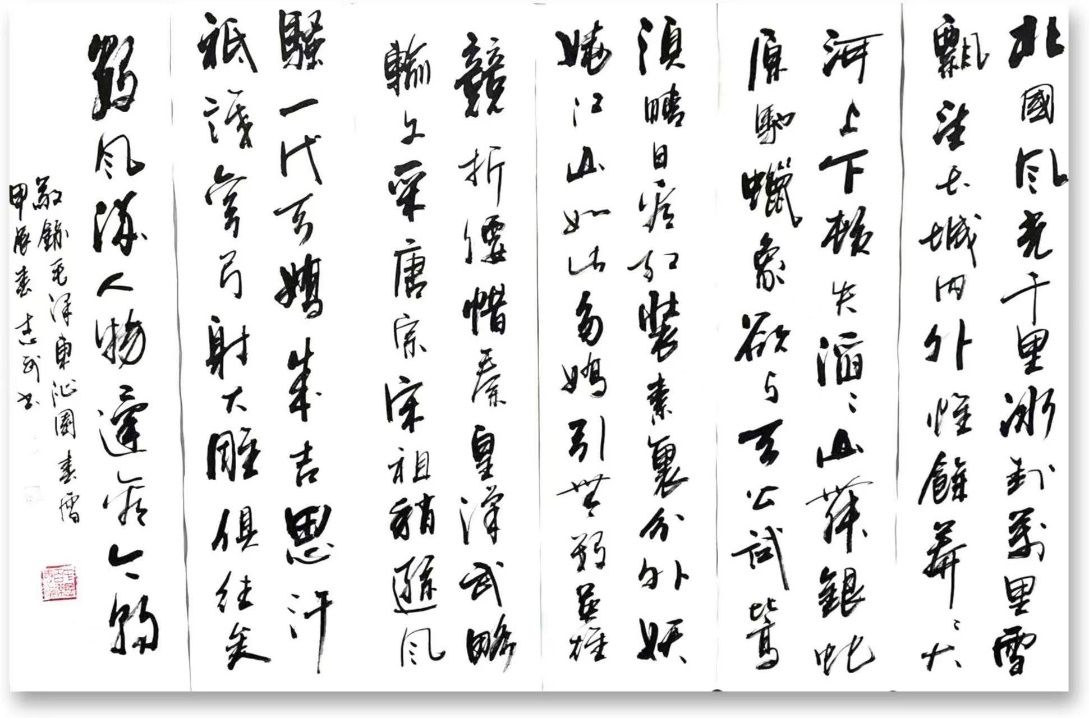 北國风光千里冰封萬里雪
飄望长城内外惟餘莽〻大
河上下頓失滔〻山舞銀蛇
原馳蠟象欲与天公試比高
須晴日看红裝素裹分外妖
娆江山如此多嬌引無數英雄
競折腰惜秦皇漢武略
輸文采唐宗宋祖稍遜风
騷一代天嬌成吉思汗
祗識彎弓射大雕俱往矣
數风流人物還看今朝
敬錄毛泽東沁園春雪
甲辰春志武书